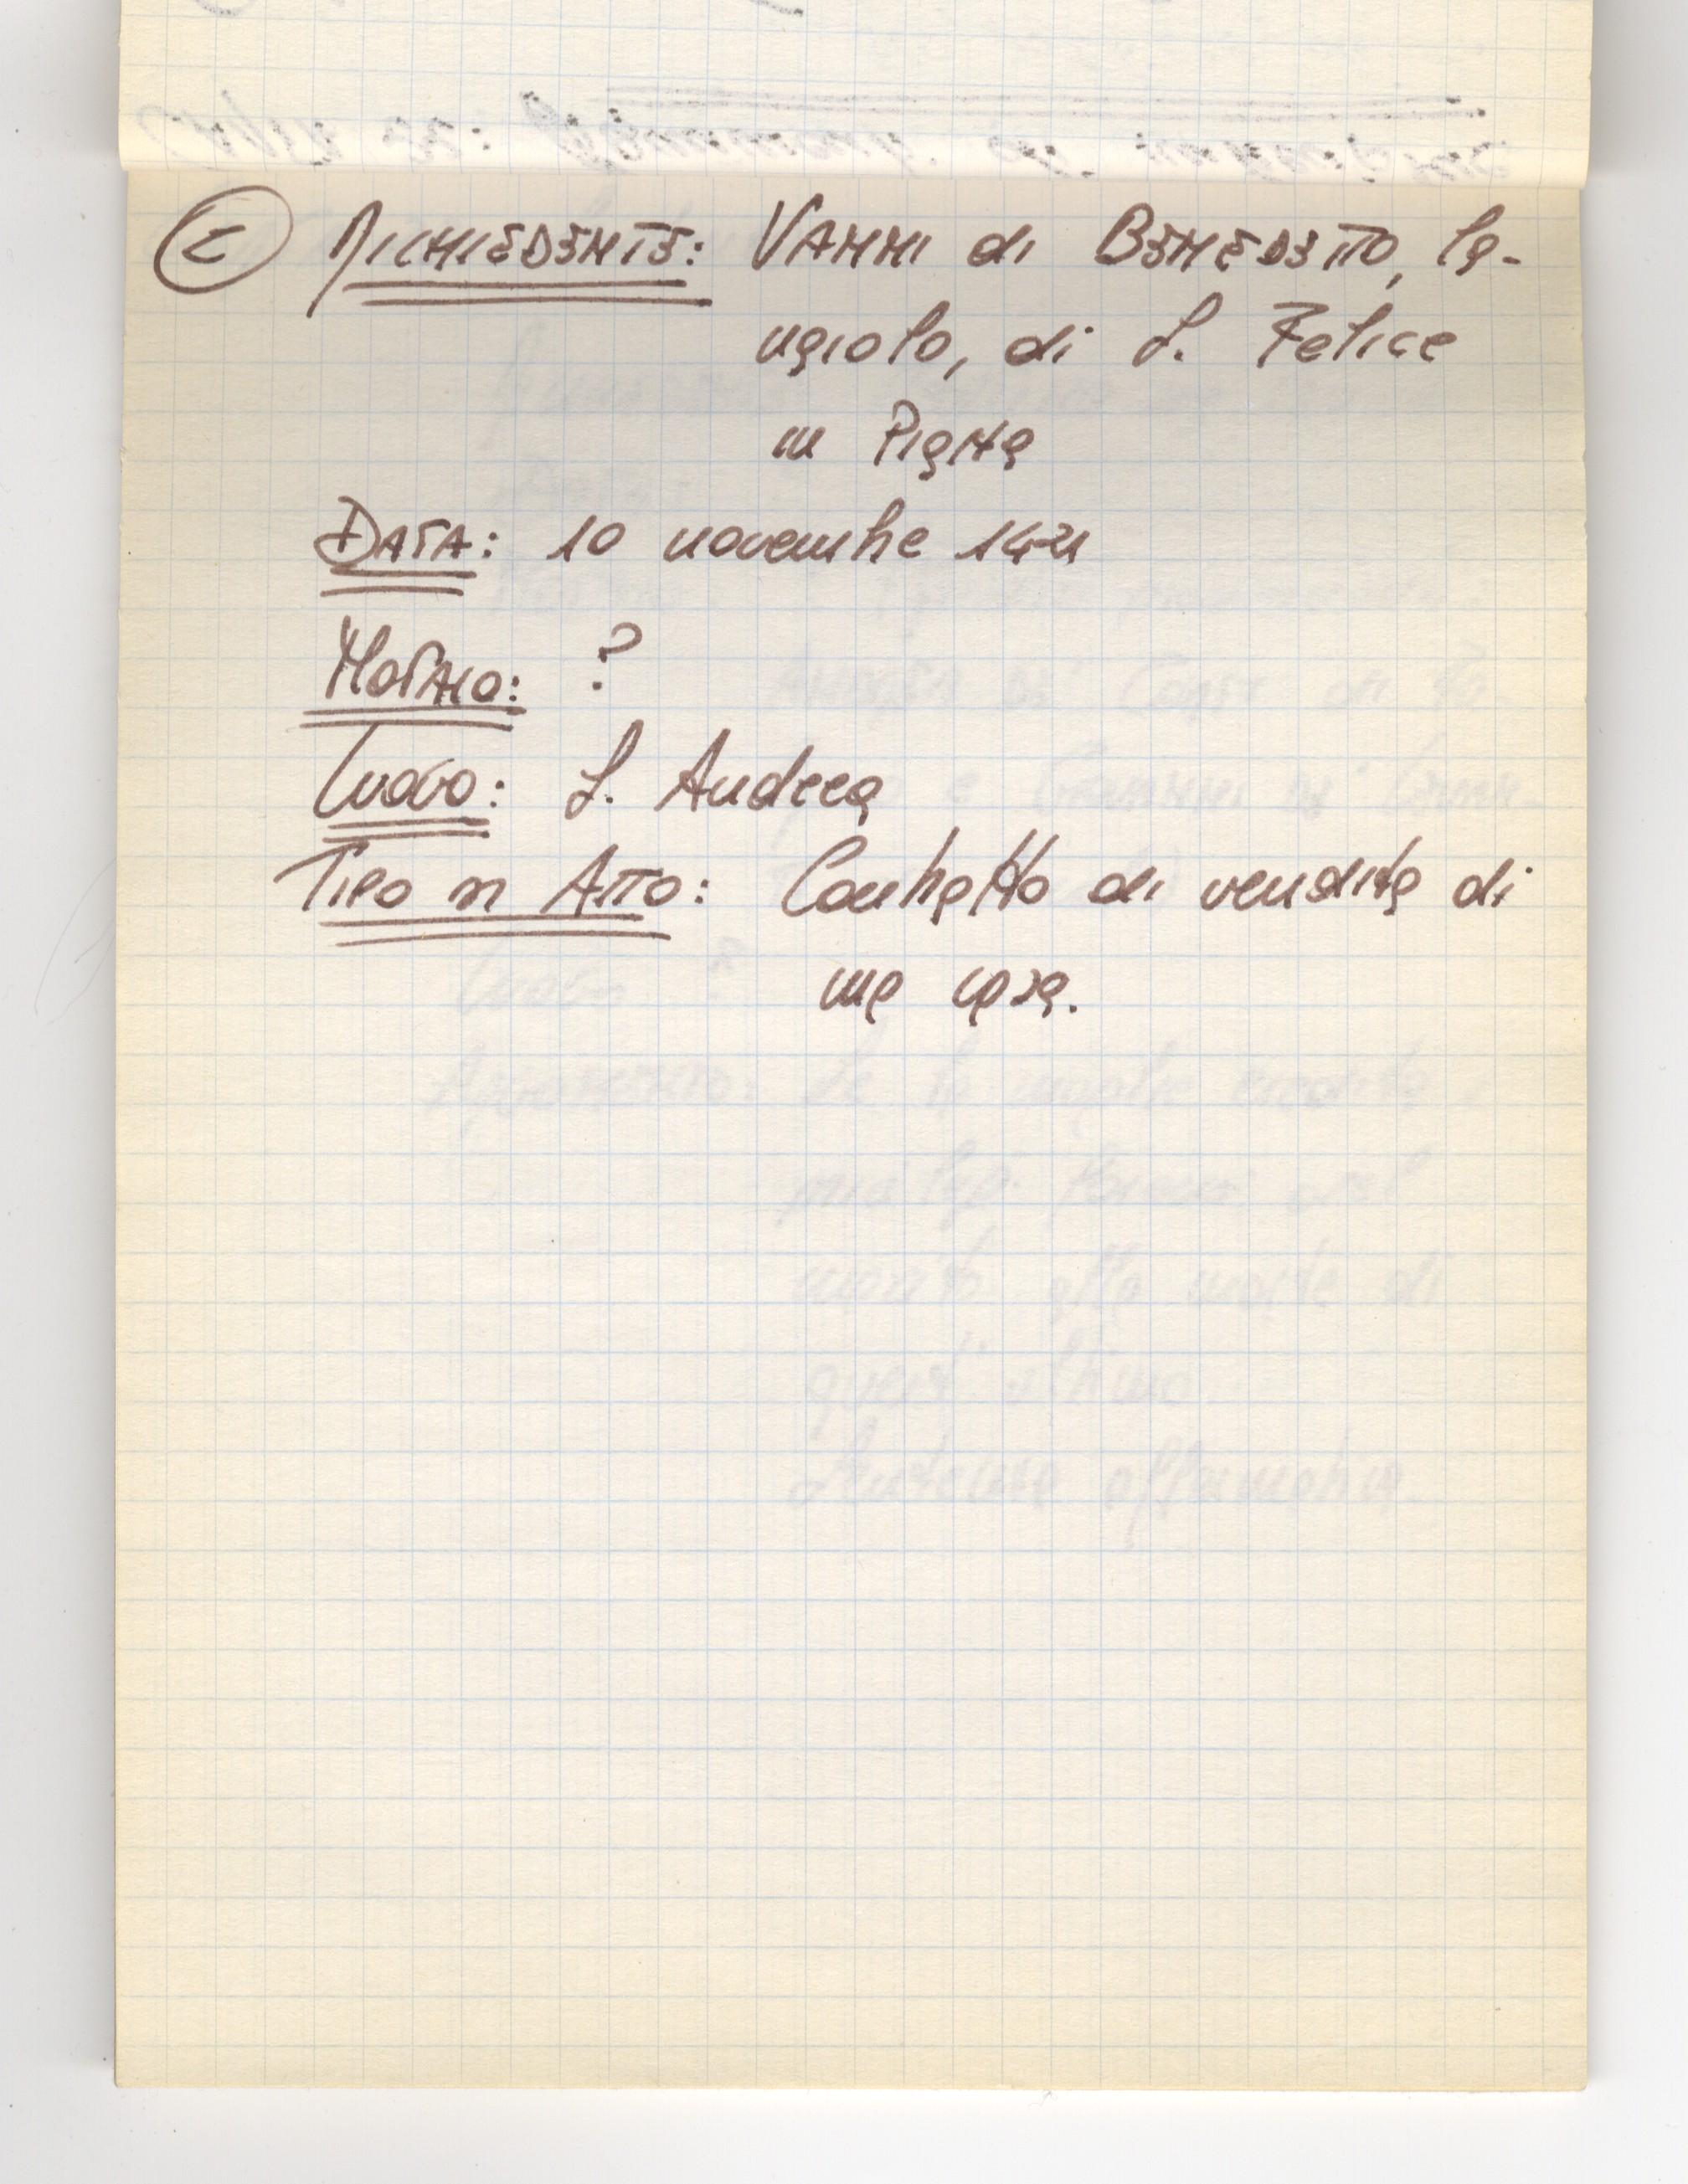 RICHIEDENTE: VANNI di BENEDETTO, la-
naiolo, di S. Felice
in Piana
DATA: 10 novembre 1421
NOTAIO: ?
LUOGO: S. Andrea
TIPO DI ATTO: Contratto di vendita di
una casa.